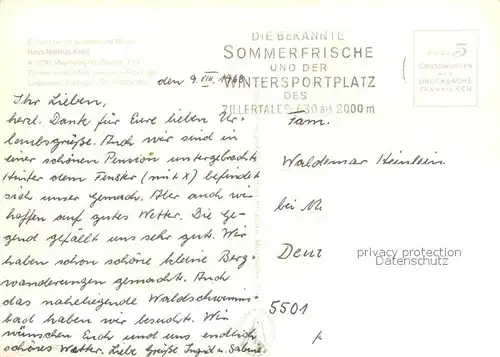 DIE BEKANNTE
SOMMERFRISCHE
UND DER
WINTERSPORTPLATZ
DES
ZILLERTALES 630 BIS 2000 m
5
GRUSSWORTEN
ALS
DRUCKSACHE
FRANKIEREN
den 9. VIII. 1968
Ihr Lieben,
herzl. Dank für Eure lieben Ur-
laubsgrüße. Auch wir sind in
einer schönen Pension untergebracht.
Hinter dem Fenster (mit X) befindet
sich unser Gemach. Aber auch wir
hoffen auf gutes Wetter. Die Ge-
gend gefällt uns sehr gut. Wir
haben schon schöne kleine Berg-
wanderungen gemacht. Auch
das naheliegende Waldschwimm-
bad haben wir besucht. Wir
wünschen Euch und uns endlich
schönes Wetter. Liebe Grüße Ingrid u. Sabine
Fam.
Waldemar Heinlein
bei M.
Deut
5501
privacy protection
Datenschutz